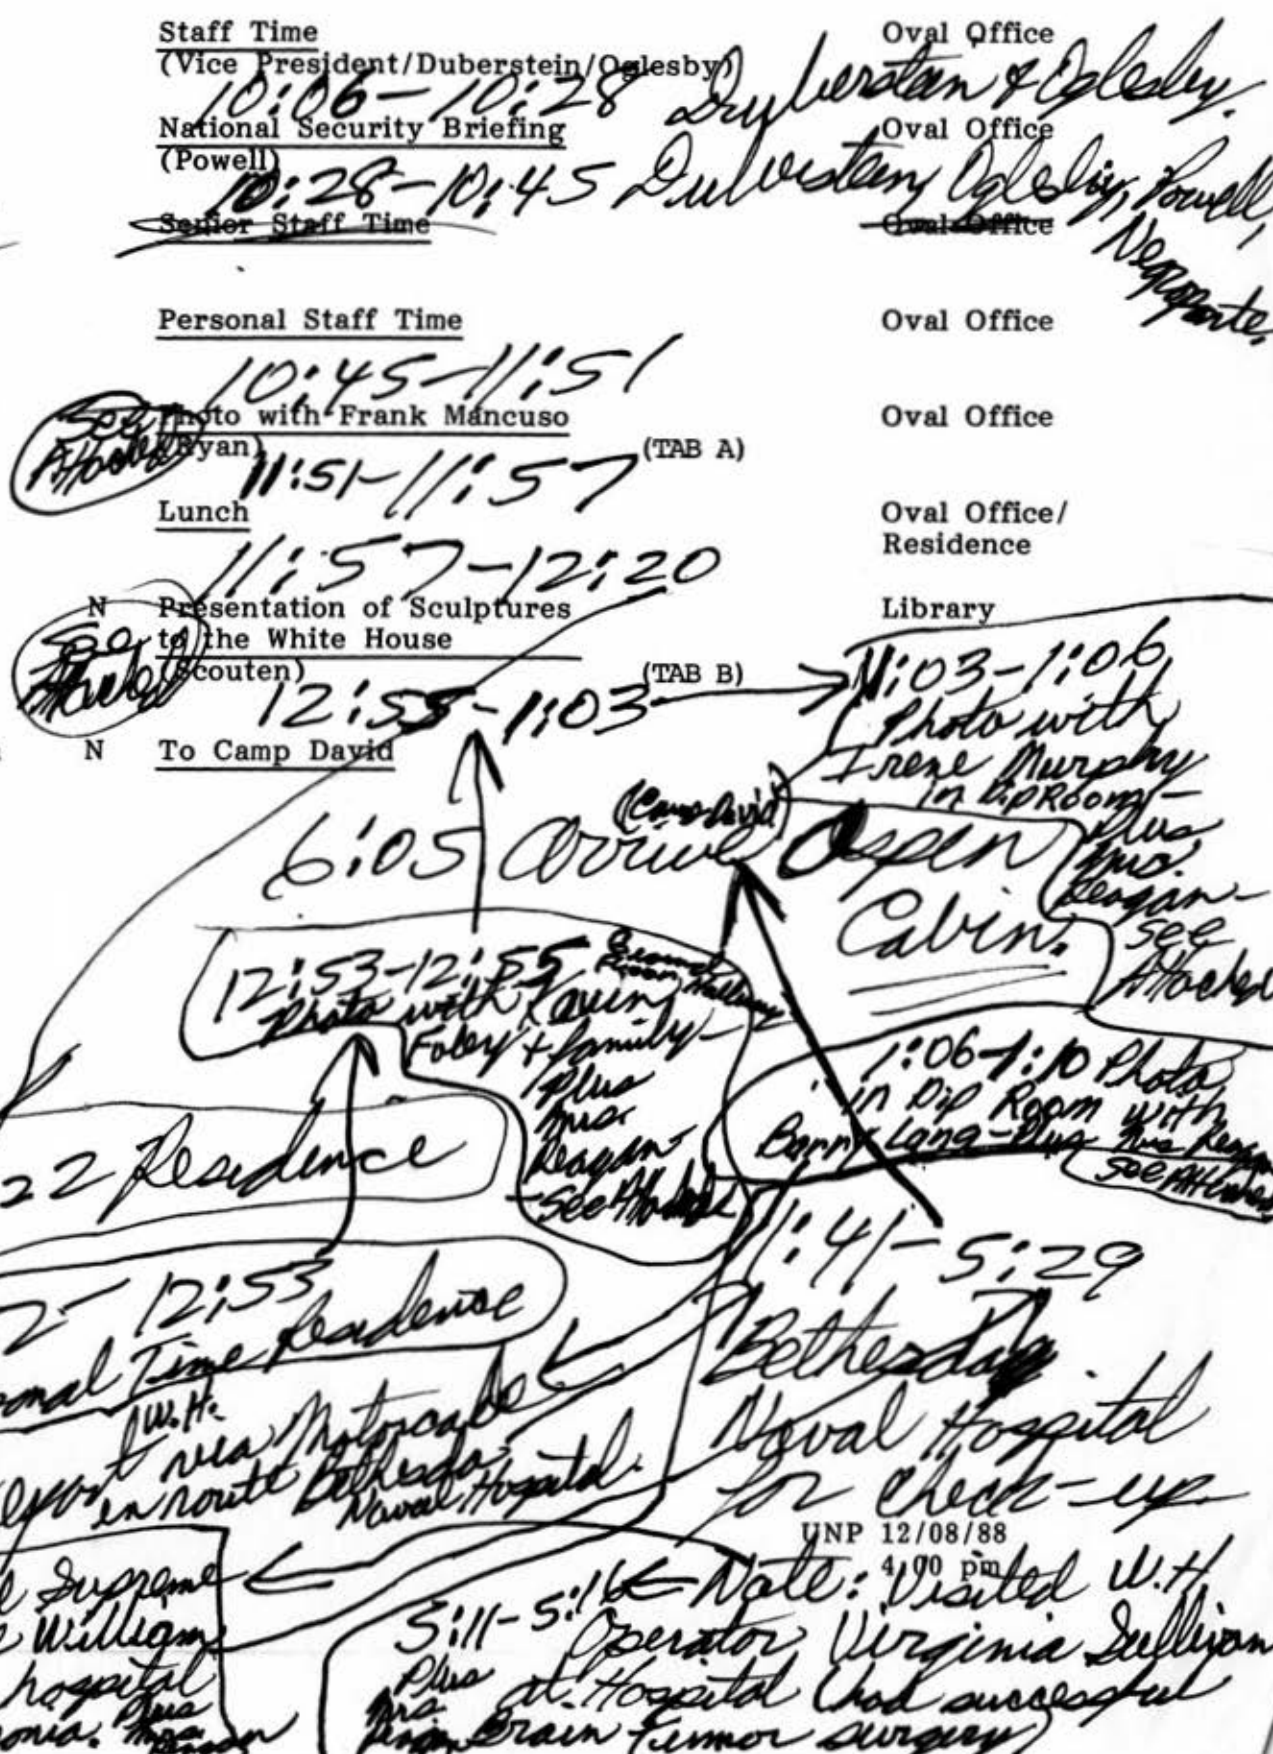 Staff Time Oval Office
(Vice President/Duberstein/Oglesby)
10:06-10:28 Duberstein & Oglesby.
National Security Briefing Oval Office
(Powell)
10:28-10:45 Duberstein, Oglesby, Powell,
Negroponte,
Senior Staff Time Oval Office
Personal Staff Time Oval Office
10:45-11:51
See Attached
Photo with Frank Mancuso Oval Office
(Ryan) (TAB A)
11:51-11:57
Lunch Oval Office/
Residence
11:57-12:20
N Presentation of Sculptures Library
to the White House
See Attached
(Scouten) (TAB B)
12:55-1:03
1:03-1:06
Photo with
Irene Murphy
in Dip Room-
Plus
Mrs.
Reagan-
See
Attached
N To Camp David
6:05 Arrive (Camp David) Aspen
Cabin.
12:53-12:55
Photo with
Foley & family-
Plus
Mrs.
Reagan-
See Attached
1:06-1:10 Photo
in Dip Room with
Lang-Plus Mrs Reagan
See Attached
22 Residence
12:53
Time Residence
1:41-5:29
Bethesda
Naval Hospital
for check-up
W.H.
via Motorcade
en route Bethesda
Naval Hospital.
UNP 12/08/88
4:00 pm
Supreme
William
hospital
Plus
Mrs.
Reagan
5:11-5:16 Note: Visited W.H.
Operator Virginia Sullivan
Plus
at Hospital (had successful
Mrs.
Reagan
Brain Tumor surgery)